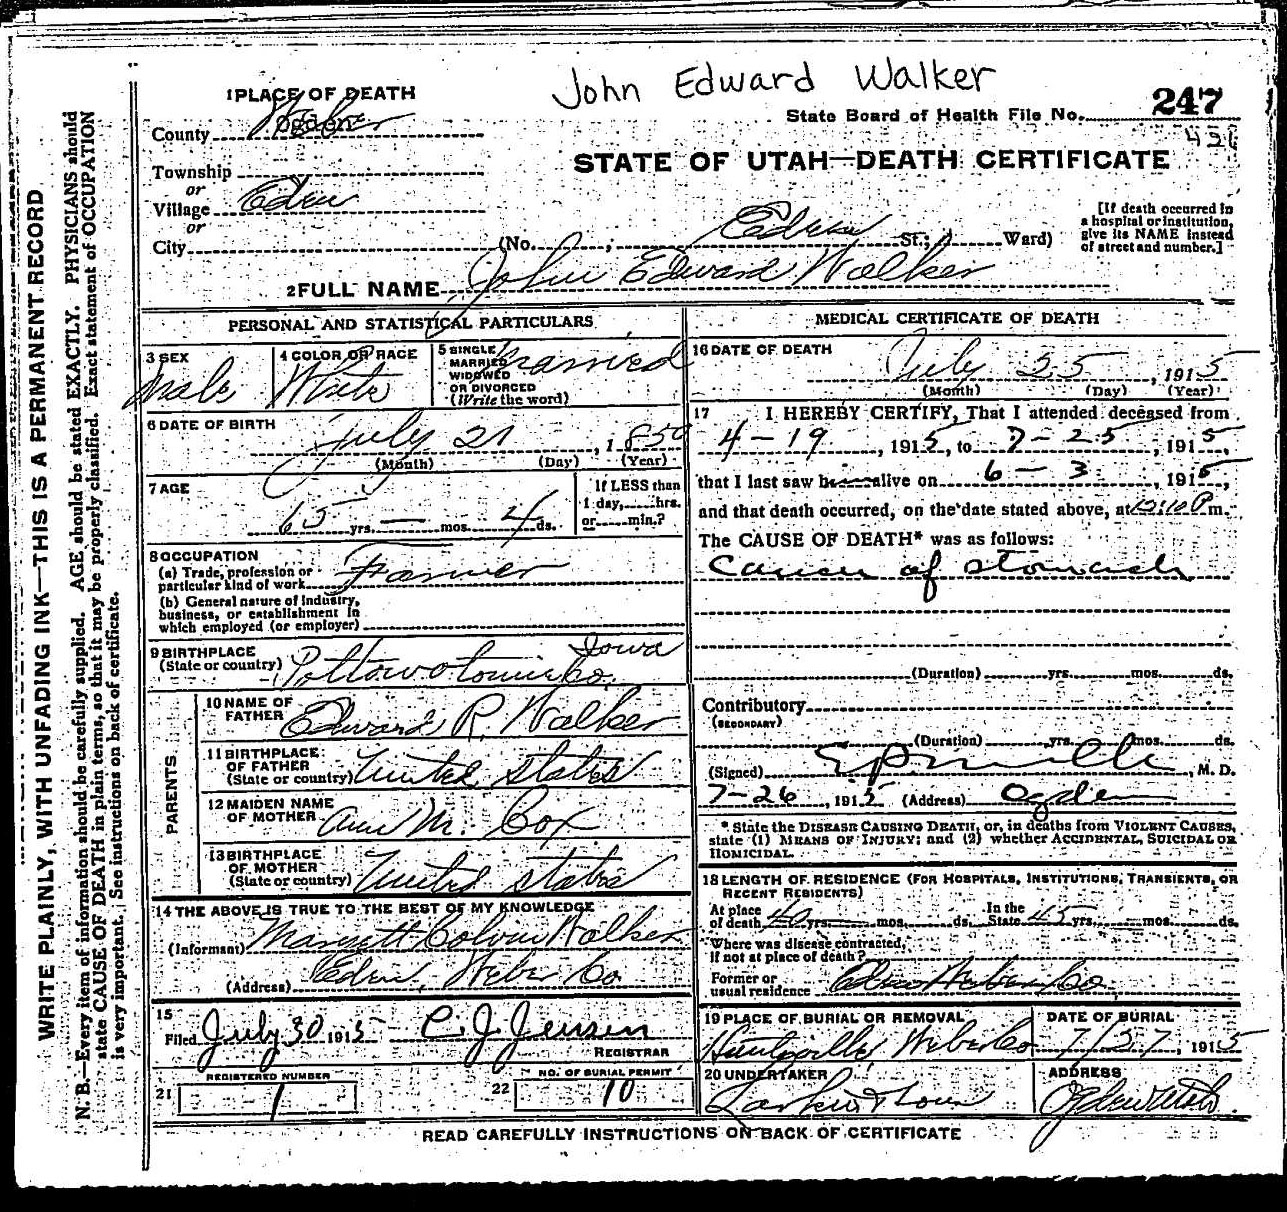 John Edward Walker
1 PLACE OF DEATH
State Board of Health File No. 247
County Weber
STATE OF UTAH—DEATH CERTIFICATE
Township
or
Village Eden
or
City (No. ; Eden St.; Ward)
[If death occurred in
a hospital or institution,
give its NAME instead
of street and number.]
2 FULL NAME John Edward Walker
PERSONAL AND STATISTICAL PARTICULARS
3 SEX
Male
4 COLOR OR RACE
White
5 SINGLE
MARRIED
WIDOWED
OR DIVORCED
(Write the word)
Married
6 DATE OF BIRTH
July 21, 1850
(Month) (Day) (Year)
7 AGE
65 yrs. — mos. 4 ds.
If LESS than
1 day, hrs.
or min.?
8 OCCUPATION
(a) Trade, profession or
particular kind of work Farmer
(b) General nature of industry,
business, or establishment in
which employed (or employer)
9 BIRTHPLACE
(State or country) Pottowotomie Co. Iowa
PARENTS
10 NAME OF
FATHER Edward R. Walker
11 BIRTHPLACE
OF FATHER
(State or country) United States
12 MAIDEN NAME
OF MOTHER Ann M. Cox
13 BIRTHPLACE
OF MOTHER
(State or country) United States
14 THE ABOVE IS TRUE TO THE BEST OF MY KNOWLEDGE
(Informant) Margett Colvin Walker
(Address) Eden, Weber Co
15
Filed July 30 1915 C. J. Jensen
REGISTRAR
REGISTERED NUMBER
21 1
NO. OF BURIAL PERMIT
22 10
MEDICAL CERTIFICATE OF DEATH
16 DATE OF DEATH
July 25, 1915
(Month) (Day) (Year)
17 I HEREBY CERTIFY, That I attended deceased from
4-19, 1915, to 7-25, 1915,
that I last saw h alive on 6-3, 1915,
and that death occurred, on the date stated above, at 12:10 P m.
The CAUSE OF DEATH* was as follows:
Cancer of stomach
(Duration) yrs. mos. ds.
Contributory
(SECONDARY)
(Duration) yrs. mos. ds.
(Signed) E. P. Mills, M. D.
7-26, 1915 (Address) Ogden
* State the DISEASE CAUSING DEATH, or, in deaths from VIOLENT CAUSES,
state (1) MEANS OF INJURY; and (2) whether ACCIDENTAL, SUICIDAL OR
HOMICIDAL.
18 LENGTH OF RESIDENCE (FOR HOSPITALS, INSTITUTIONS, TRANSIENTS, OR
RECENT RESIDENTS)
At place
of death 40 yrs. mos. ds. In the
State 45 yrs. mos. ds.
Where was disease contracted,
if not at place of death?
Former or
usual residence Eden Weber Co.
19 PLACE OF BURIAL OR REMOVAL
Huntsville, Weber Co
DATE OF BURIAL
7/27, 1915
20 UNDERTAKER
Larkin & Sons
ADDRESS
Ogden Utah.
READ CAREFULLY INSTRUCTIONS ON BACK OF CERTIFICATE
WRITE PLAINLY, WITH UNFADING INK—THIS IS A PERMANENT RECORD
N. B.—Every item of information should be carefully supplied. AGE should be stated EXACTLY. PHYSICIANS should
state CAUSE OF DEATH in plain terms, so that it may be properly classified. Exact statement of OCCUPATION
is very important. See instructions on back of certificate.